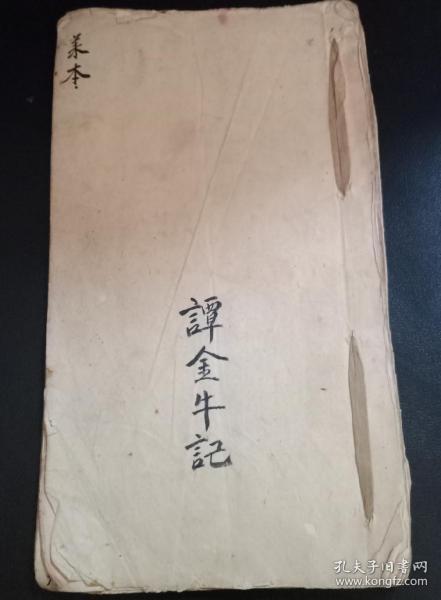 菜本
譚金牛記
孔夫子旧书网
www.kongfz.com